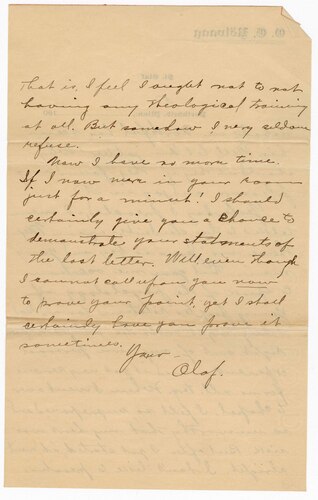 That is, I feel I ought not to not
having any theological training
at all. But somehow I very seldom
refuse.
Now I have no more time.
If I now were in your room
just for a minute! I should
certainly give you a chance to
demonstrate your statements of
the last letter. Well, even though
I cannot call upon you now
to prove your point, yet I shall
certainly have you prove it
sometimes.
Yours –
Olaf.